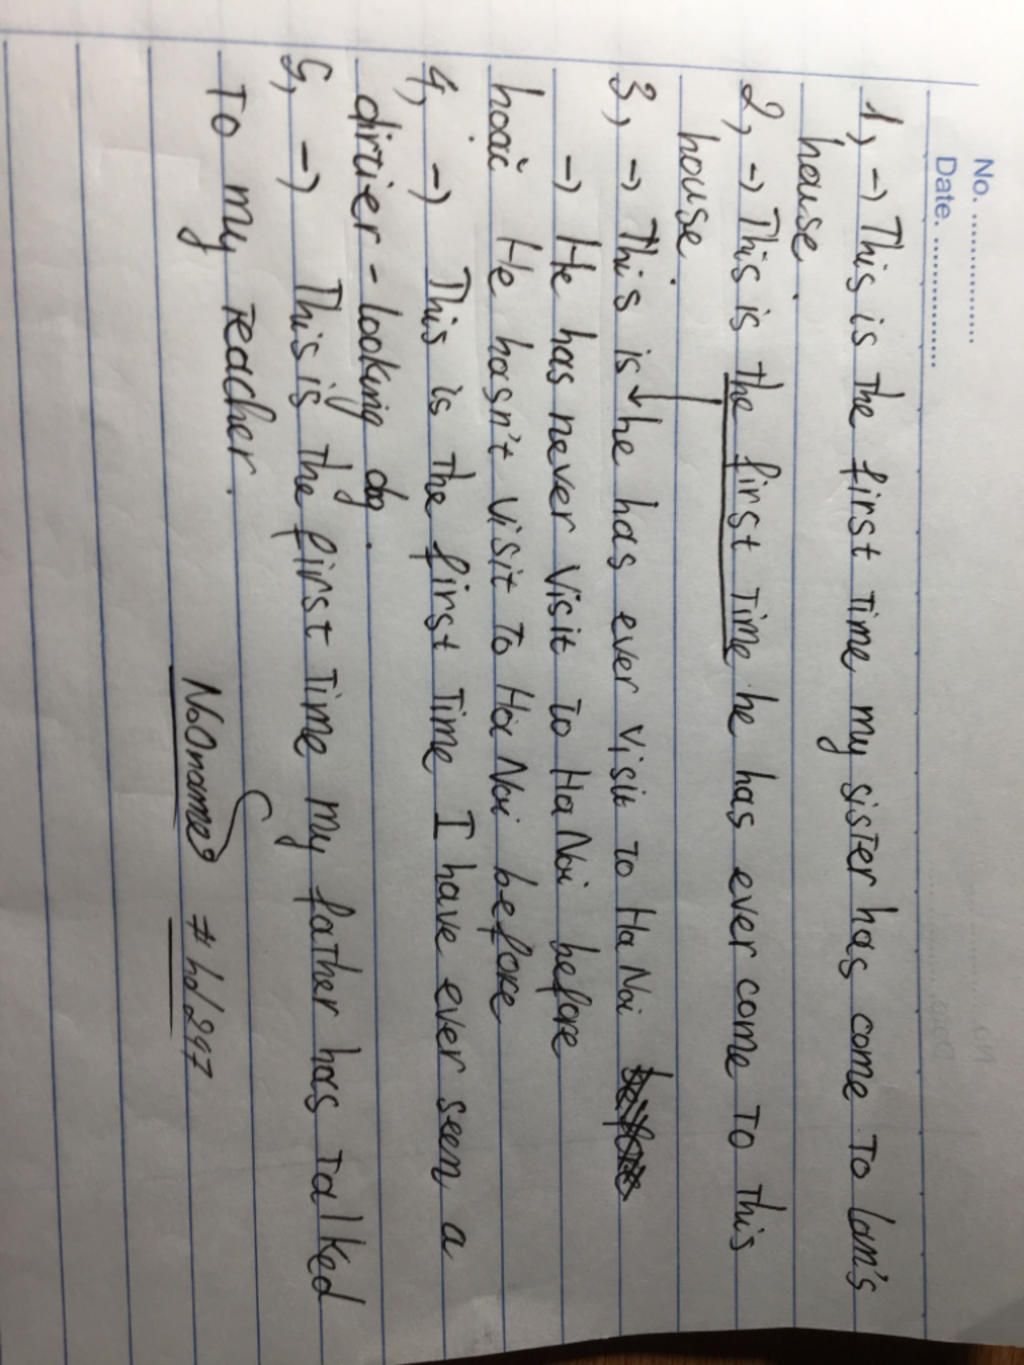 No. ................
Date. ................
1, -) This is the first time my sister has come to Lan's
house.
2, -) This is the first time he has ever come to this
house.
3, -) This is he has ever visit to Ha Noi
-) He has never visit to Ha Noi before
hoặc He hasn't visit to Ha Noi before
4, -) This is the first time I have ever seen a
dirtier-looking dog.
5, -) This is the first time my father has talked
to my teacher.
NoOname #hd297